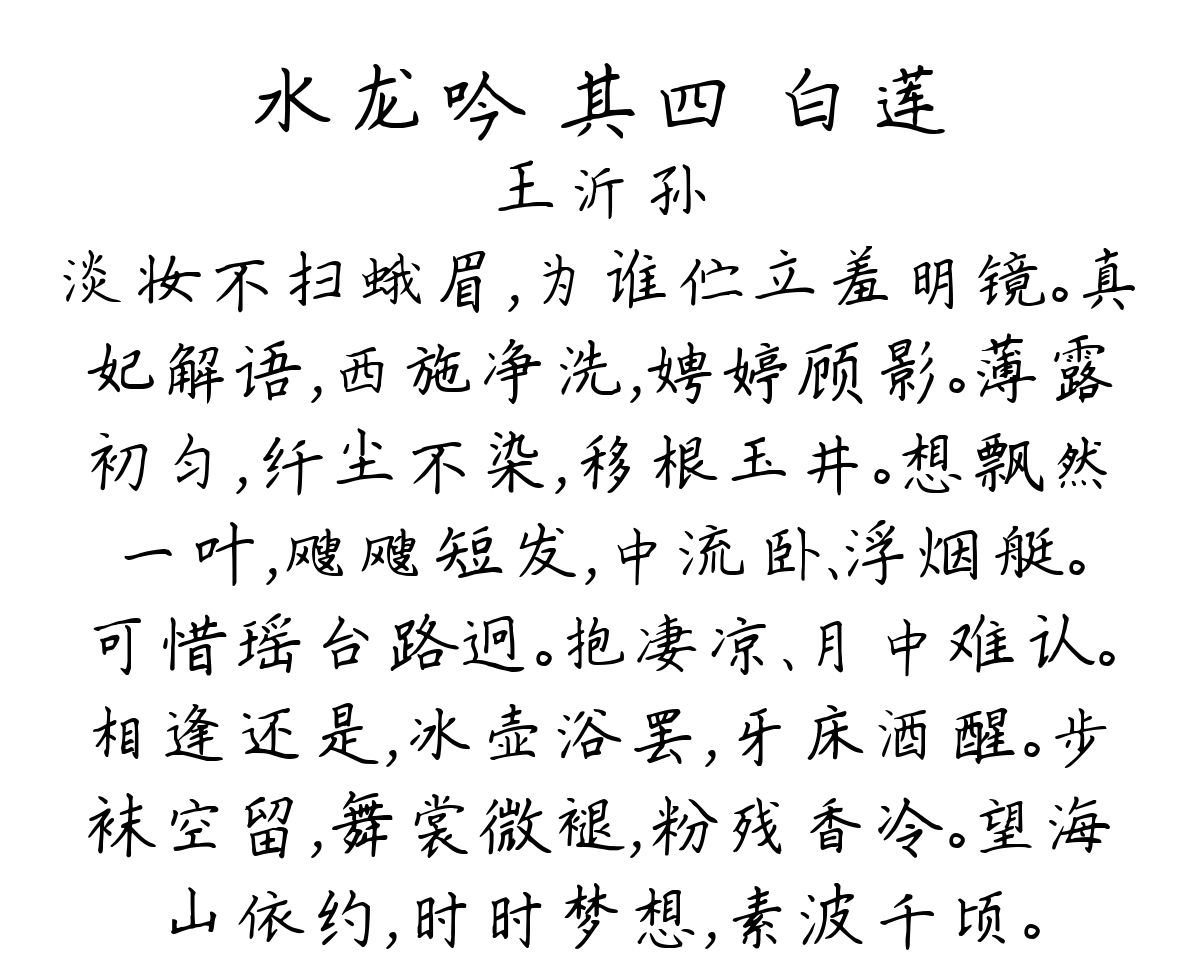 水龙吟 其四 白莲
王沂孙
淡妆不扫蛾眉,为谁伫立羞明镜。真
妃解语,西施净洗,娉婷顾影。薄露
初匀,纤尘不染,移根玉井。想飘然
一叶,飕飕短发,中流卧、浮烟艇。
可惜瑶台路迥。抱凄凉、月中难认。
相逢还是,冰壶浴罢,牙床酒醒。步
袜空留,舞裳微褪,粉残香冷。望海
山依约,时时梦想,素波千顷。